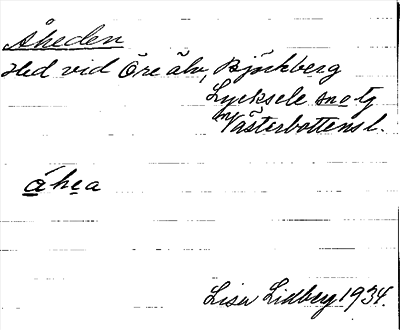 Åheden
Hed vid Öre älv, Björkberg
Lycksele sn o tg
Västerbottens l.
åhea
Lisa Lidberg 1934.